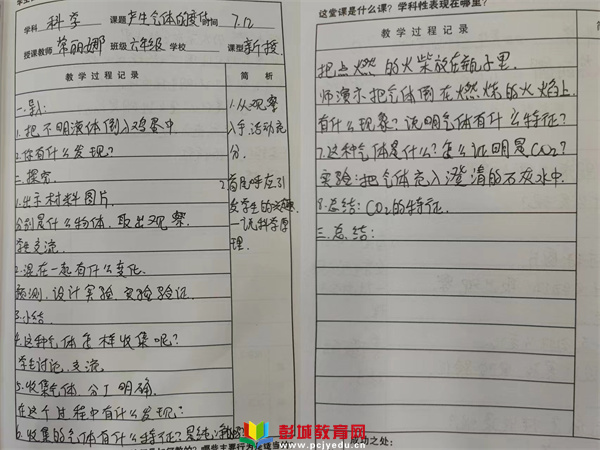 学科 科学 课题 产生气体的变化 时间 7.12
授课教师 常丽娜 班级 六年级 学校 课型 新授
教学过程记录
简析
一.导入
1.把不明液体倒入鸡蛋中
2.你有什么发现?
二.探究
1.出示材料图片.
分别是什么物体,取出观察
学生交流.
2.混在一起有什么变化.
预测.设计实验 实验验证
3.小结
4.这种气体怎样收集呢?
学生讨论,交流
5.收集气体.分工明确.
在这个过程中有什么发现?
6.收集的气体有什么特征?总结:
1.从观察
入手,活动充
分.
2.首尾呼应,引
发学生的兴趣.
一识科学原
理.
这堂课是什么课?学科性表现在哪里?
教学过程记录
把点燃的火柴放在瓶子里.
师演示把气体倒在燃烧的火焰上.
有什么现象?说明气体有什么特征?
7.这种气体是什么?怎么证明是CO2?
实验:把气体充入澄清的石灰水中.
8.总结:CO2的特征.
三.总结:
成功之处:
彭城教育网
www.pcjyedu.cn